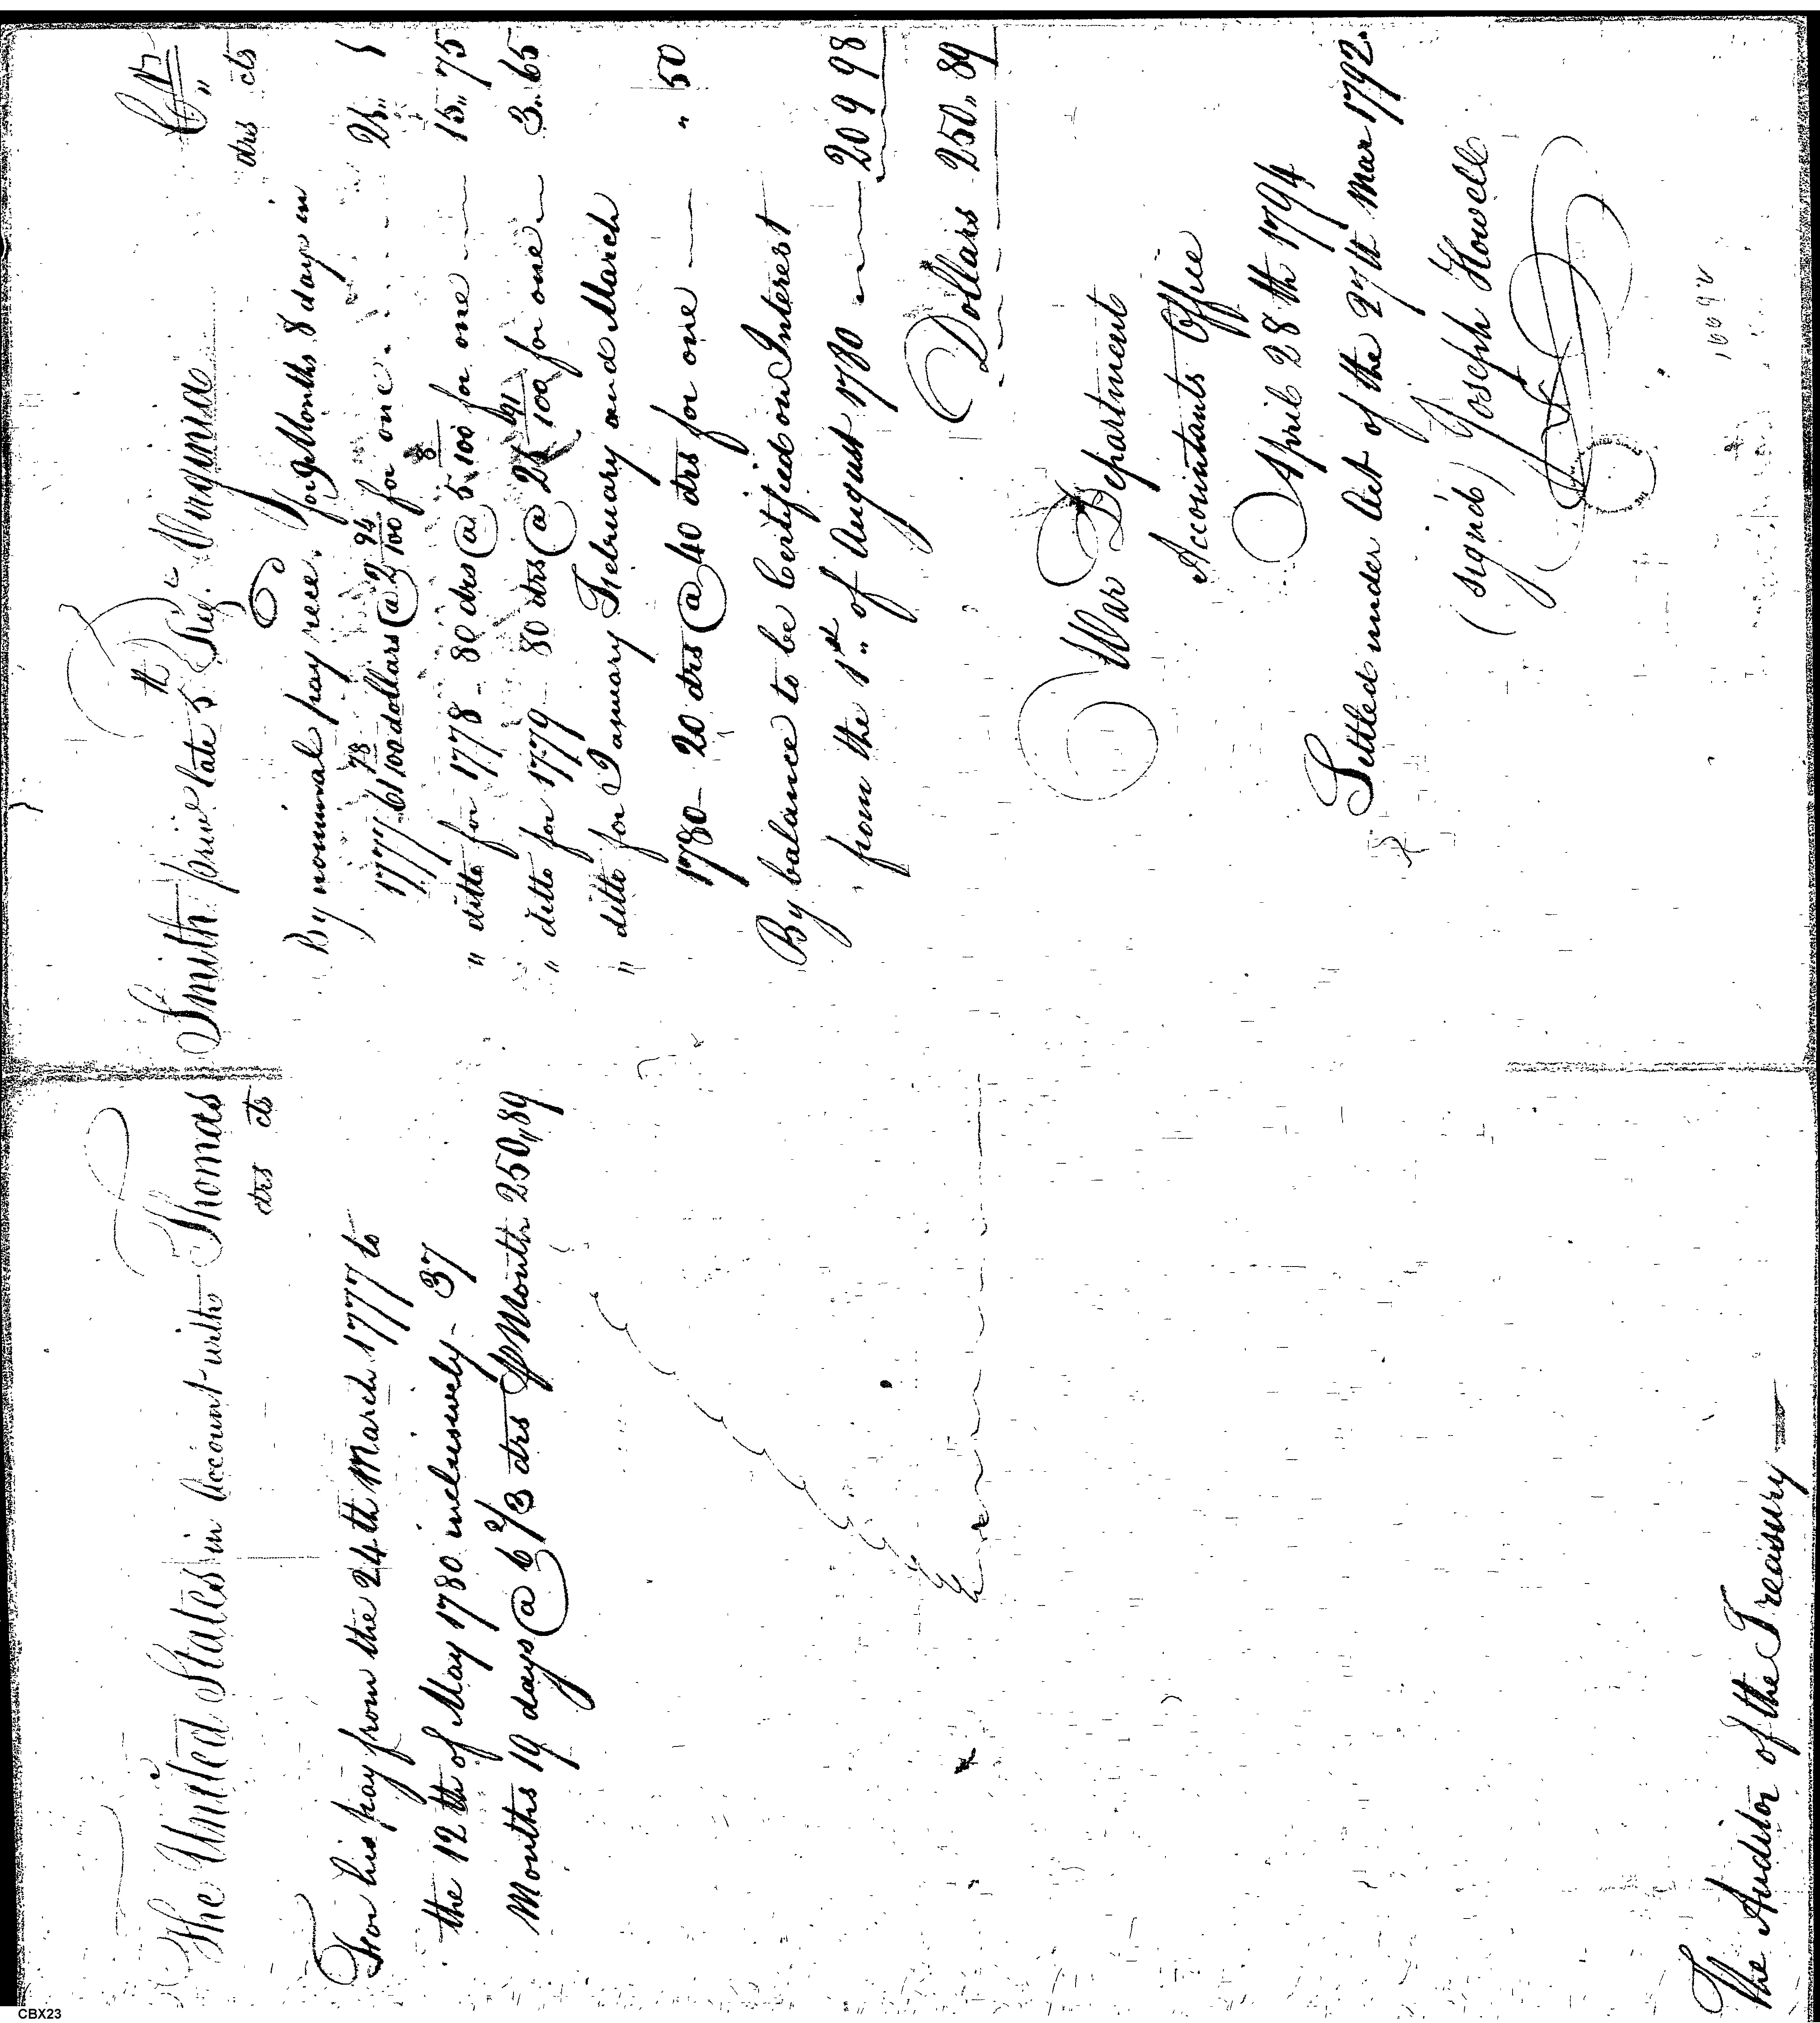 The United States in Account with Thomas Smith priv late 5th Reg. Virginia Cr
drs cts
For his pay from the 24th March 1777 to
the 12th of May 1780 inclusively - 37
Months 19 days @ 6 2/3 drs Month 250,,89
drs cts
By nominal pay rece. for 9 Months 8 days in
1777 61 78/100 dollars @ 2 94/100 for one 21,, 1
" ditto for 1778 - 80 drs @ 5 8/100 for one 15,, 75
" ditto for 1779 80 drs @ 21 91/100 for one 3,, 65
" ditto for January February and March
1780 - 20 drs @ 40 drs for one " 50
By balance to be Certified on Interest
from the 1st of August 1780 209 98
Dollars 250,, 89
War Department
Accountants Office
April 28th 1794
Settled under Act of the 27th Mar 1792.
(signd) Joseph Howell
The Auditor of the Treasury
CBX23